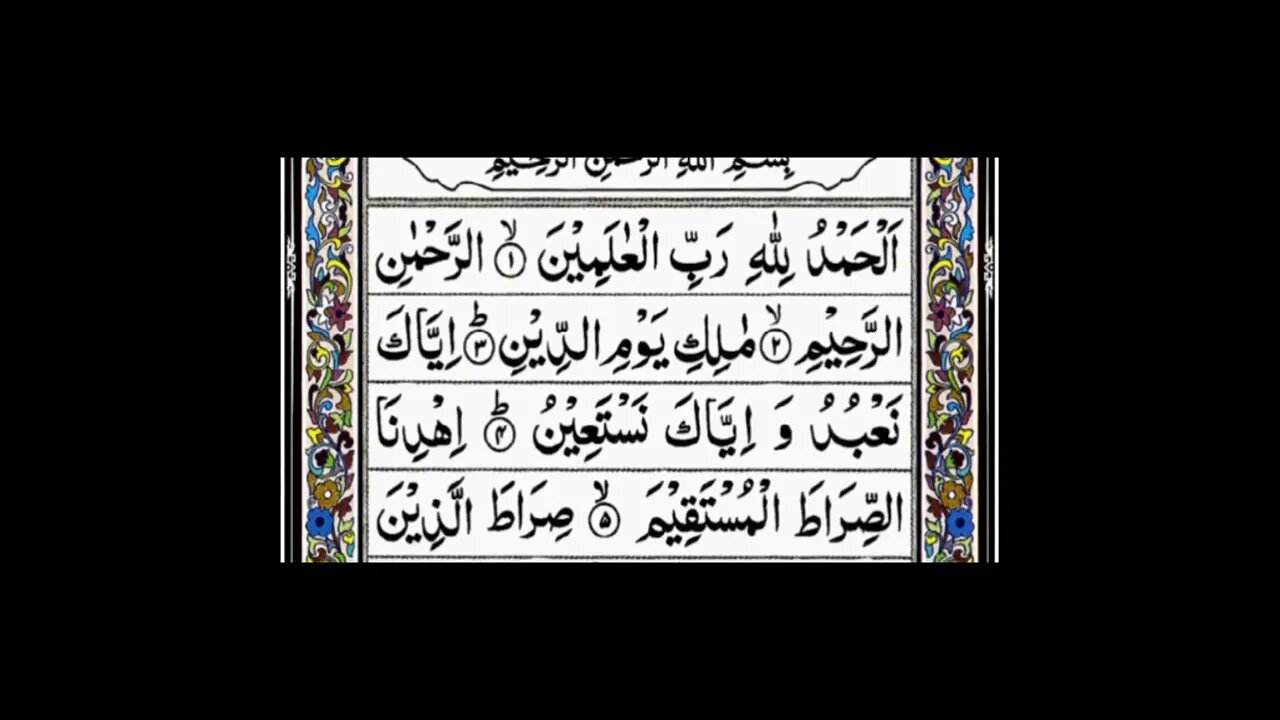 بِسْمِ اللهِ الرَّحْمٰنِ الرَّحِيْمِ
اَلْحَمْدُ لِلّٰهِ رَبِّ الْعٰلَمِيْنَ ۙ﴿۱﴾ الرَّحْمٰنِ
الرَّحِيْمِ ۙ﴿۲﴾ مٰلِكِ يَوْمِ الدِّيْنِ ؕ﴿۳﴾ اِيَّاكَ
نَعْبُدُ وَ اِيَّاكَ نَسْتَعِيْنُ ؕ﴿۴﴾ اِهْدِنَا
الصِّرَاطَ الْمُسْتَقِيْمَ ۙ﴿۵﴾ صِرَاطَ الَّذِيْنَ